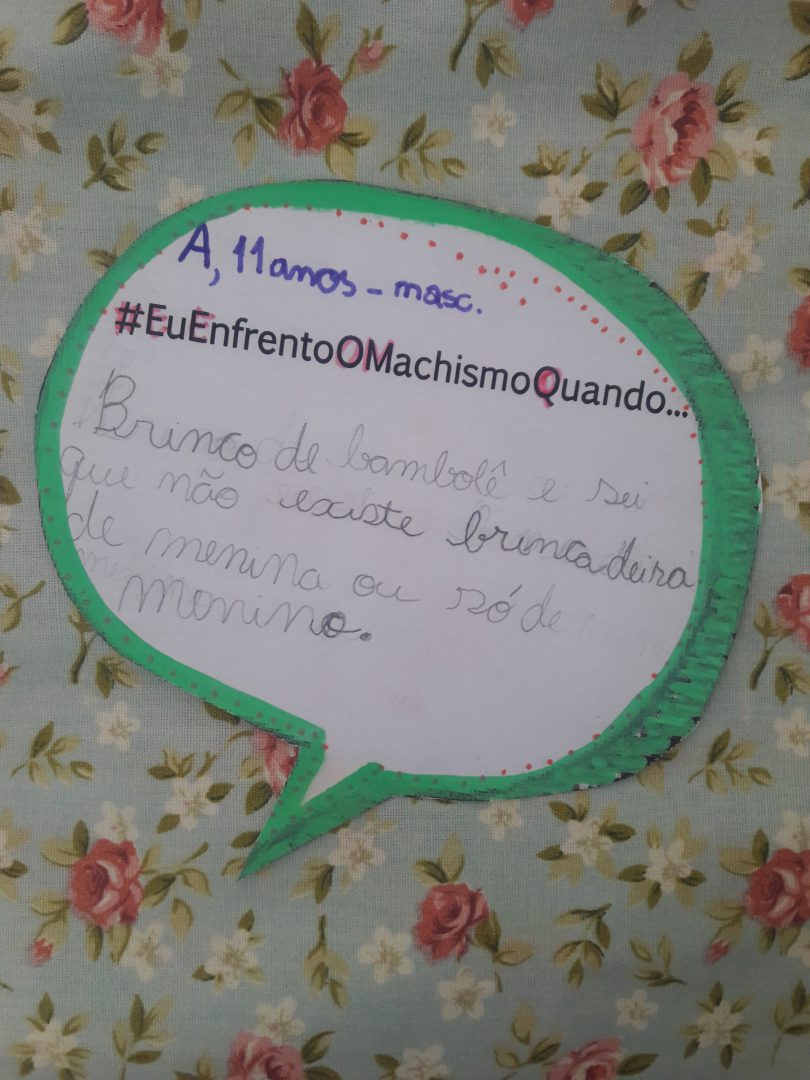 A, 11 anos - masc.
#EuEnfrentoOMachismoQuando...
Brinco de bambolê e sei
que não existe brincadeira
de menina ou só de
monino.